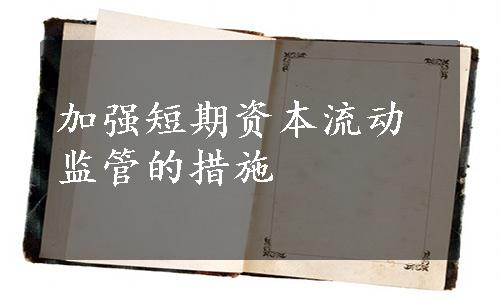 加强短期资本流动
监管的措施